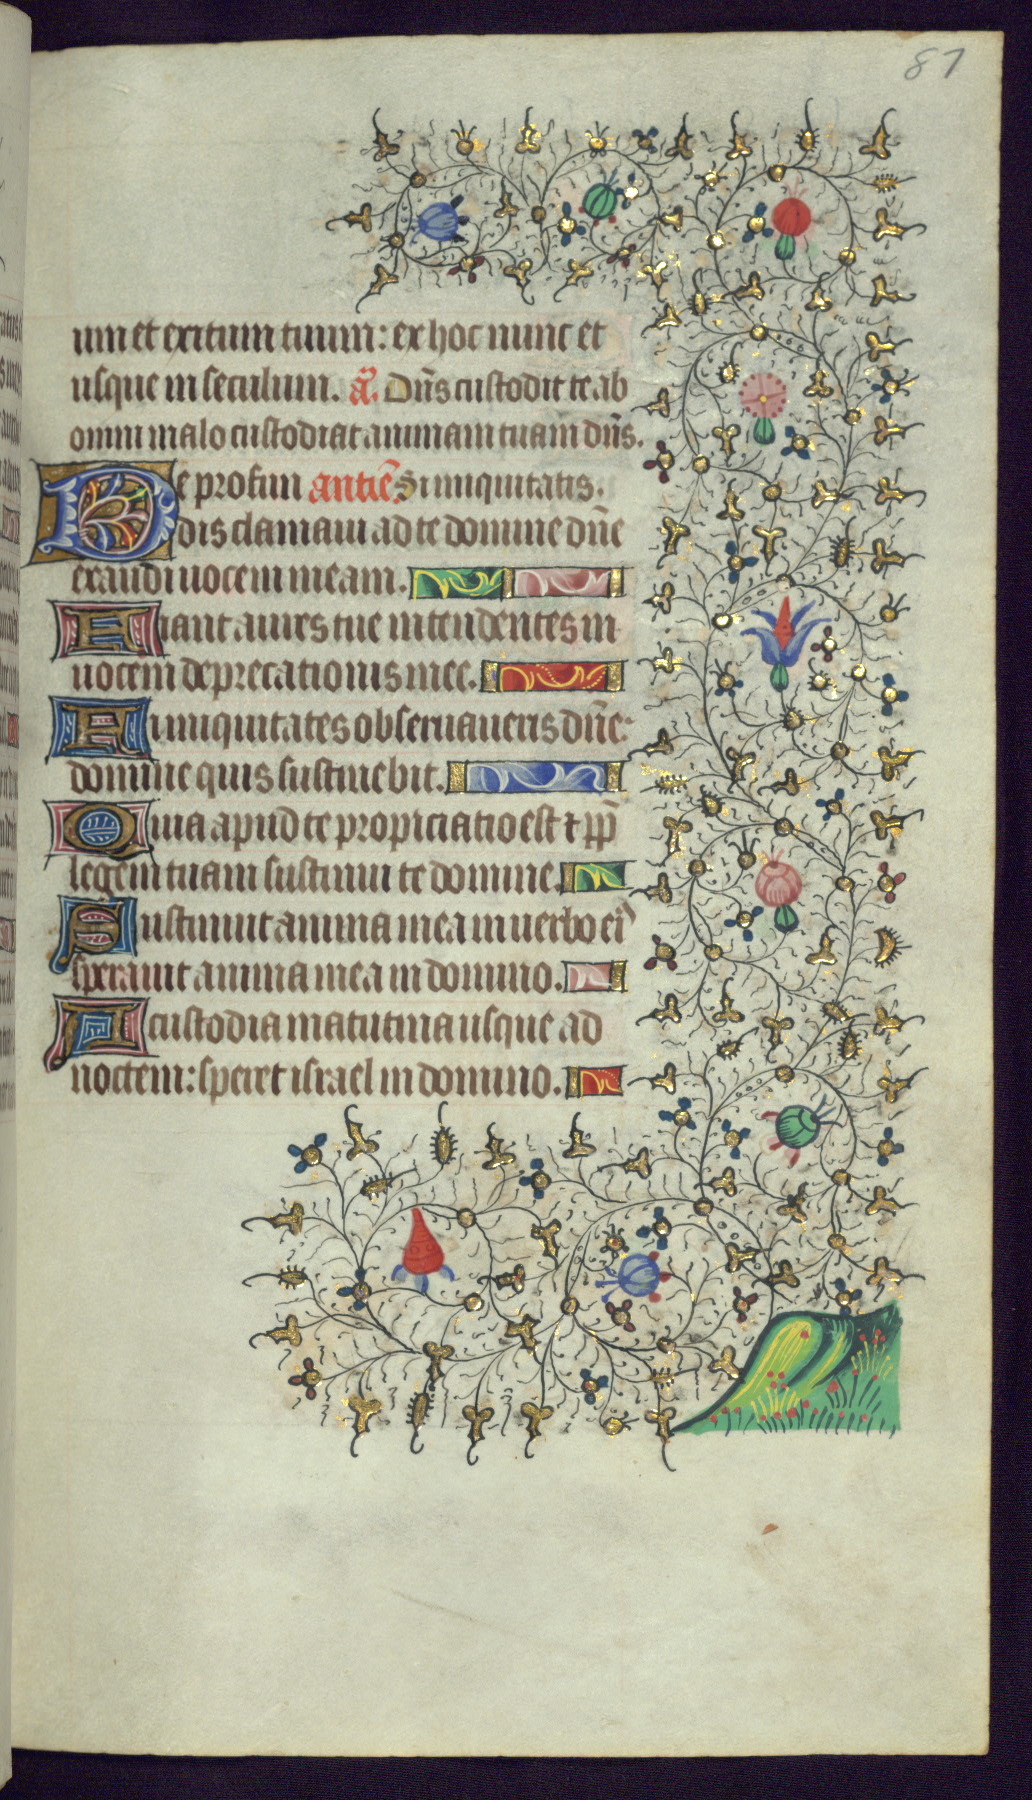 87
um et exitum tuum: ex hoc nunc et
usque in seculum. a͞. Dn̄s custodit te ab
omni malo custodiat animam tuam dn̄s.
De profun antiē Si iniquitatis.
dis clamaui ad te domine dn̄e
exaudi uocem meam.
Fiant aures tue intendentes in
uocem deprecationis mee.
Si iniquitates obseruaueris dn̄e:
domine quis sustinebit.
Quia apud te propiciatio est ⁊ pp̄
legem tuam sustinui te domine.
Sustinuit anima mea in uerbo ei᾽
sperauit anima mea in domino.
A custodia matutina usque ad
noctem: speret israel in domino.